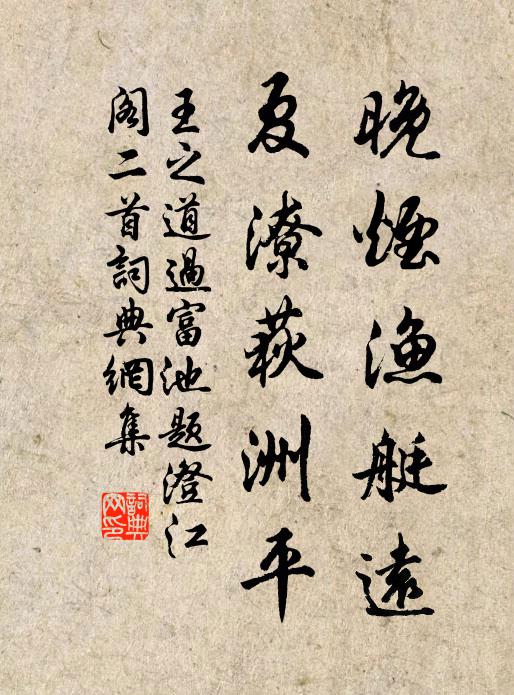 晚煙漁艇遠
夏潦荻洲平
王之道過富池題澄江
閣二首詞典網集
詞典
网印